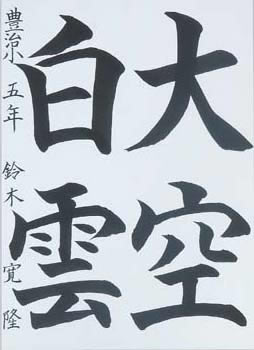 大空
白雲
豊治小 五年 鈴木寛隆